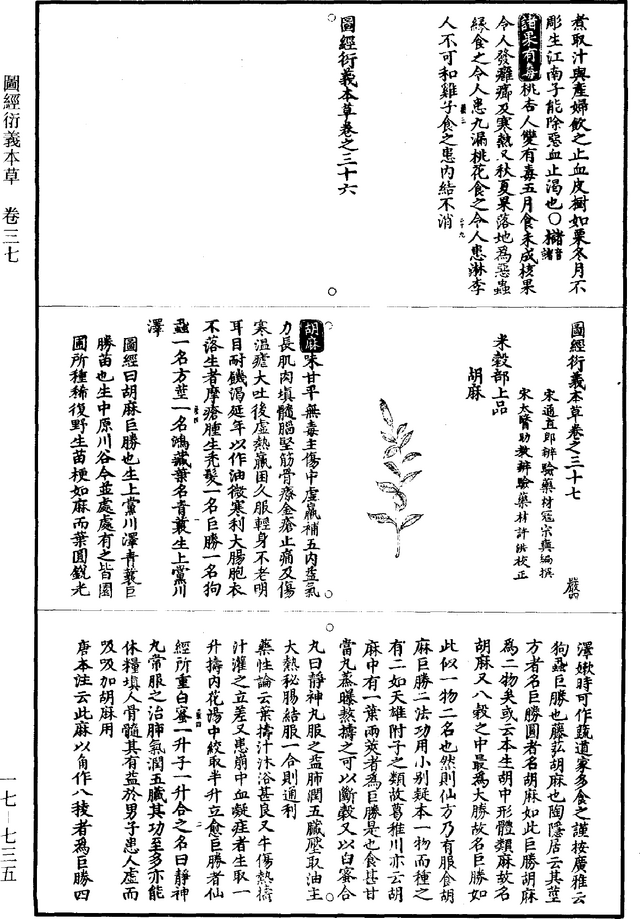 煮取汁與產婦飲之止血皮樹如栗冬月不
彫生江南子能除惡血止渴也○櫧音諸
諸果有毒桃杏人雙有毒五月食未成核果
令人發癰癤及寒熱又秋夏果落地為惡蟲
緣食之令人患九漏桃花食之令人患淋李
人不可和雞子食之患內結不消
圖經衍義本草卷之三十六
圖經衍義本草卷之三十七
宋通直郎辨驗藥材寇宗奭編撰
宋太醫助教辨驗藥材許洪校正
米穀部上品
胡麻
胡麻味甘平無毒主傷中虛羸補五內益氣
力長肌肉填髓腦堅筋骨療金瘡止痛及傷
寒溫瘧大吐後虛熱羸困久服輕身不老明
耳目耐饑渴延年以作油微寒利大腸胞衣
不落生者摩瘡腫生禿髮一名巨勝一名狗
蝨一名方莖一名鴻藏葉名青蘘生上黨川
澤
圖經曰胡麻巨勝也生上黨川澤青蘘巨
勝苗也生中原川谷今並處處有之皆園
圃所種稀復野生苗梗如麻而葉圓銳光
澤嫩時可作蔬道家多食之謹按廣雅云
狗蝨巨勝也藤苰胡麻也陶隱居云其莖
方者名巨勝圓者名胡麻如此巨勝胡麻
為二物矣或云本生胡中形體類麻故名
胡麻又八穀之中最為大勝故名巨勝如
此似一物二名也然則仙方乃有服食胡
麻巨勝二法功用小別疑本一物而種之
有二如天雄附子之類故葛稚川亦云胡
麻中有一葉兩莢者為巨勝是也食甚甘
當九蒸曝熬擣之可以斷穀又以白蜜合
丸曰靜神丸服之益肺潤五臟壓取油主
大熱秘腸結服一合則通利
藥性論云葉擣汁沐浴甚良又牛傷熱擣
汁灌之立差又患崩中血凝疰者生取一
升擣內花湯中絞取半升立愈巨勝者仙
經所重白蜜一升子一升合之名曰靜神
丸常服之治肺氣潤五臟其功至多亦能
休糧填人骨髓其有益於男子患人虛而
吸吸加胡麻用
唐本注云此麻以角作八稜者為巨勝四
圖經衍義本草　卷三七
一七－七三五